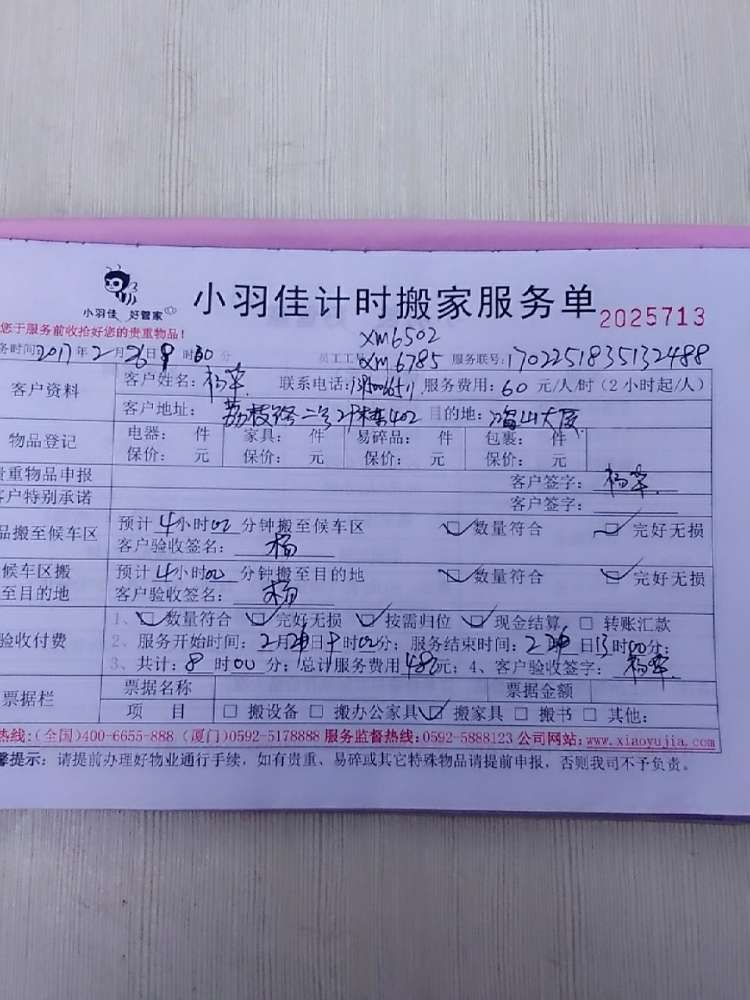 小羽佳 好管家
小羽佳计时搬家服务单
2025713
您于服务前收拾好您的贵重物品!
XM6502
务时间2017年2月26日 时30分 员工工号XM6785 服务联号:1702251835132488
客户资料
客户姓名:杨 联系电话: 服务费用:60元/人/时(2小时起/人)
客户地址:荔枝路二号 402 目的地: 山大厦
物品登记
电器: 件 家具: 件 易碎品: 件 包裹: 件
保价: 元 保价: 元 保价: 元 保价: 元
贵重物品申报 客户签字:杨
客户特别承诺 客户签字:
品搬至候车区
预计4小时00分钟搬至候车区 数量符合 完好无损
客户验收签名:杨
候车区搬
至目的地
预计4小时00分钟搬至目的地 数量符合 完好无损
客户验收签名:杨
验收付费
1、数量符合 完好无损 按需归位 现金结算 转账汇款
2、服务开始时间:2月26日 时00分;服务结束时间:2 26日13时00分;
3、共计:8时00分;总计服务费用480元;4、客户验收签字:杨
票据栏
票据名称 票据金额
项 目 搬设备 搬办公家具 搬家具 搬书 其他:
热线:(全国)400-6655-888 (厦门)0592-5178888 服务监督热线:0592-5888123 公司网站:www.xiaoyujia.com
馨提示:请提前办理好物业通行手续,如有贵重、易碎或其它特殊物品请提前申报,否则我司不予负责。